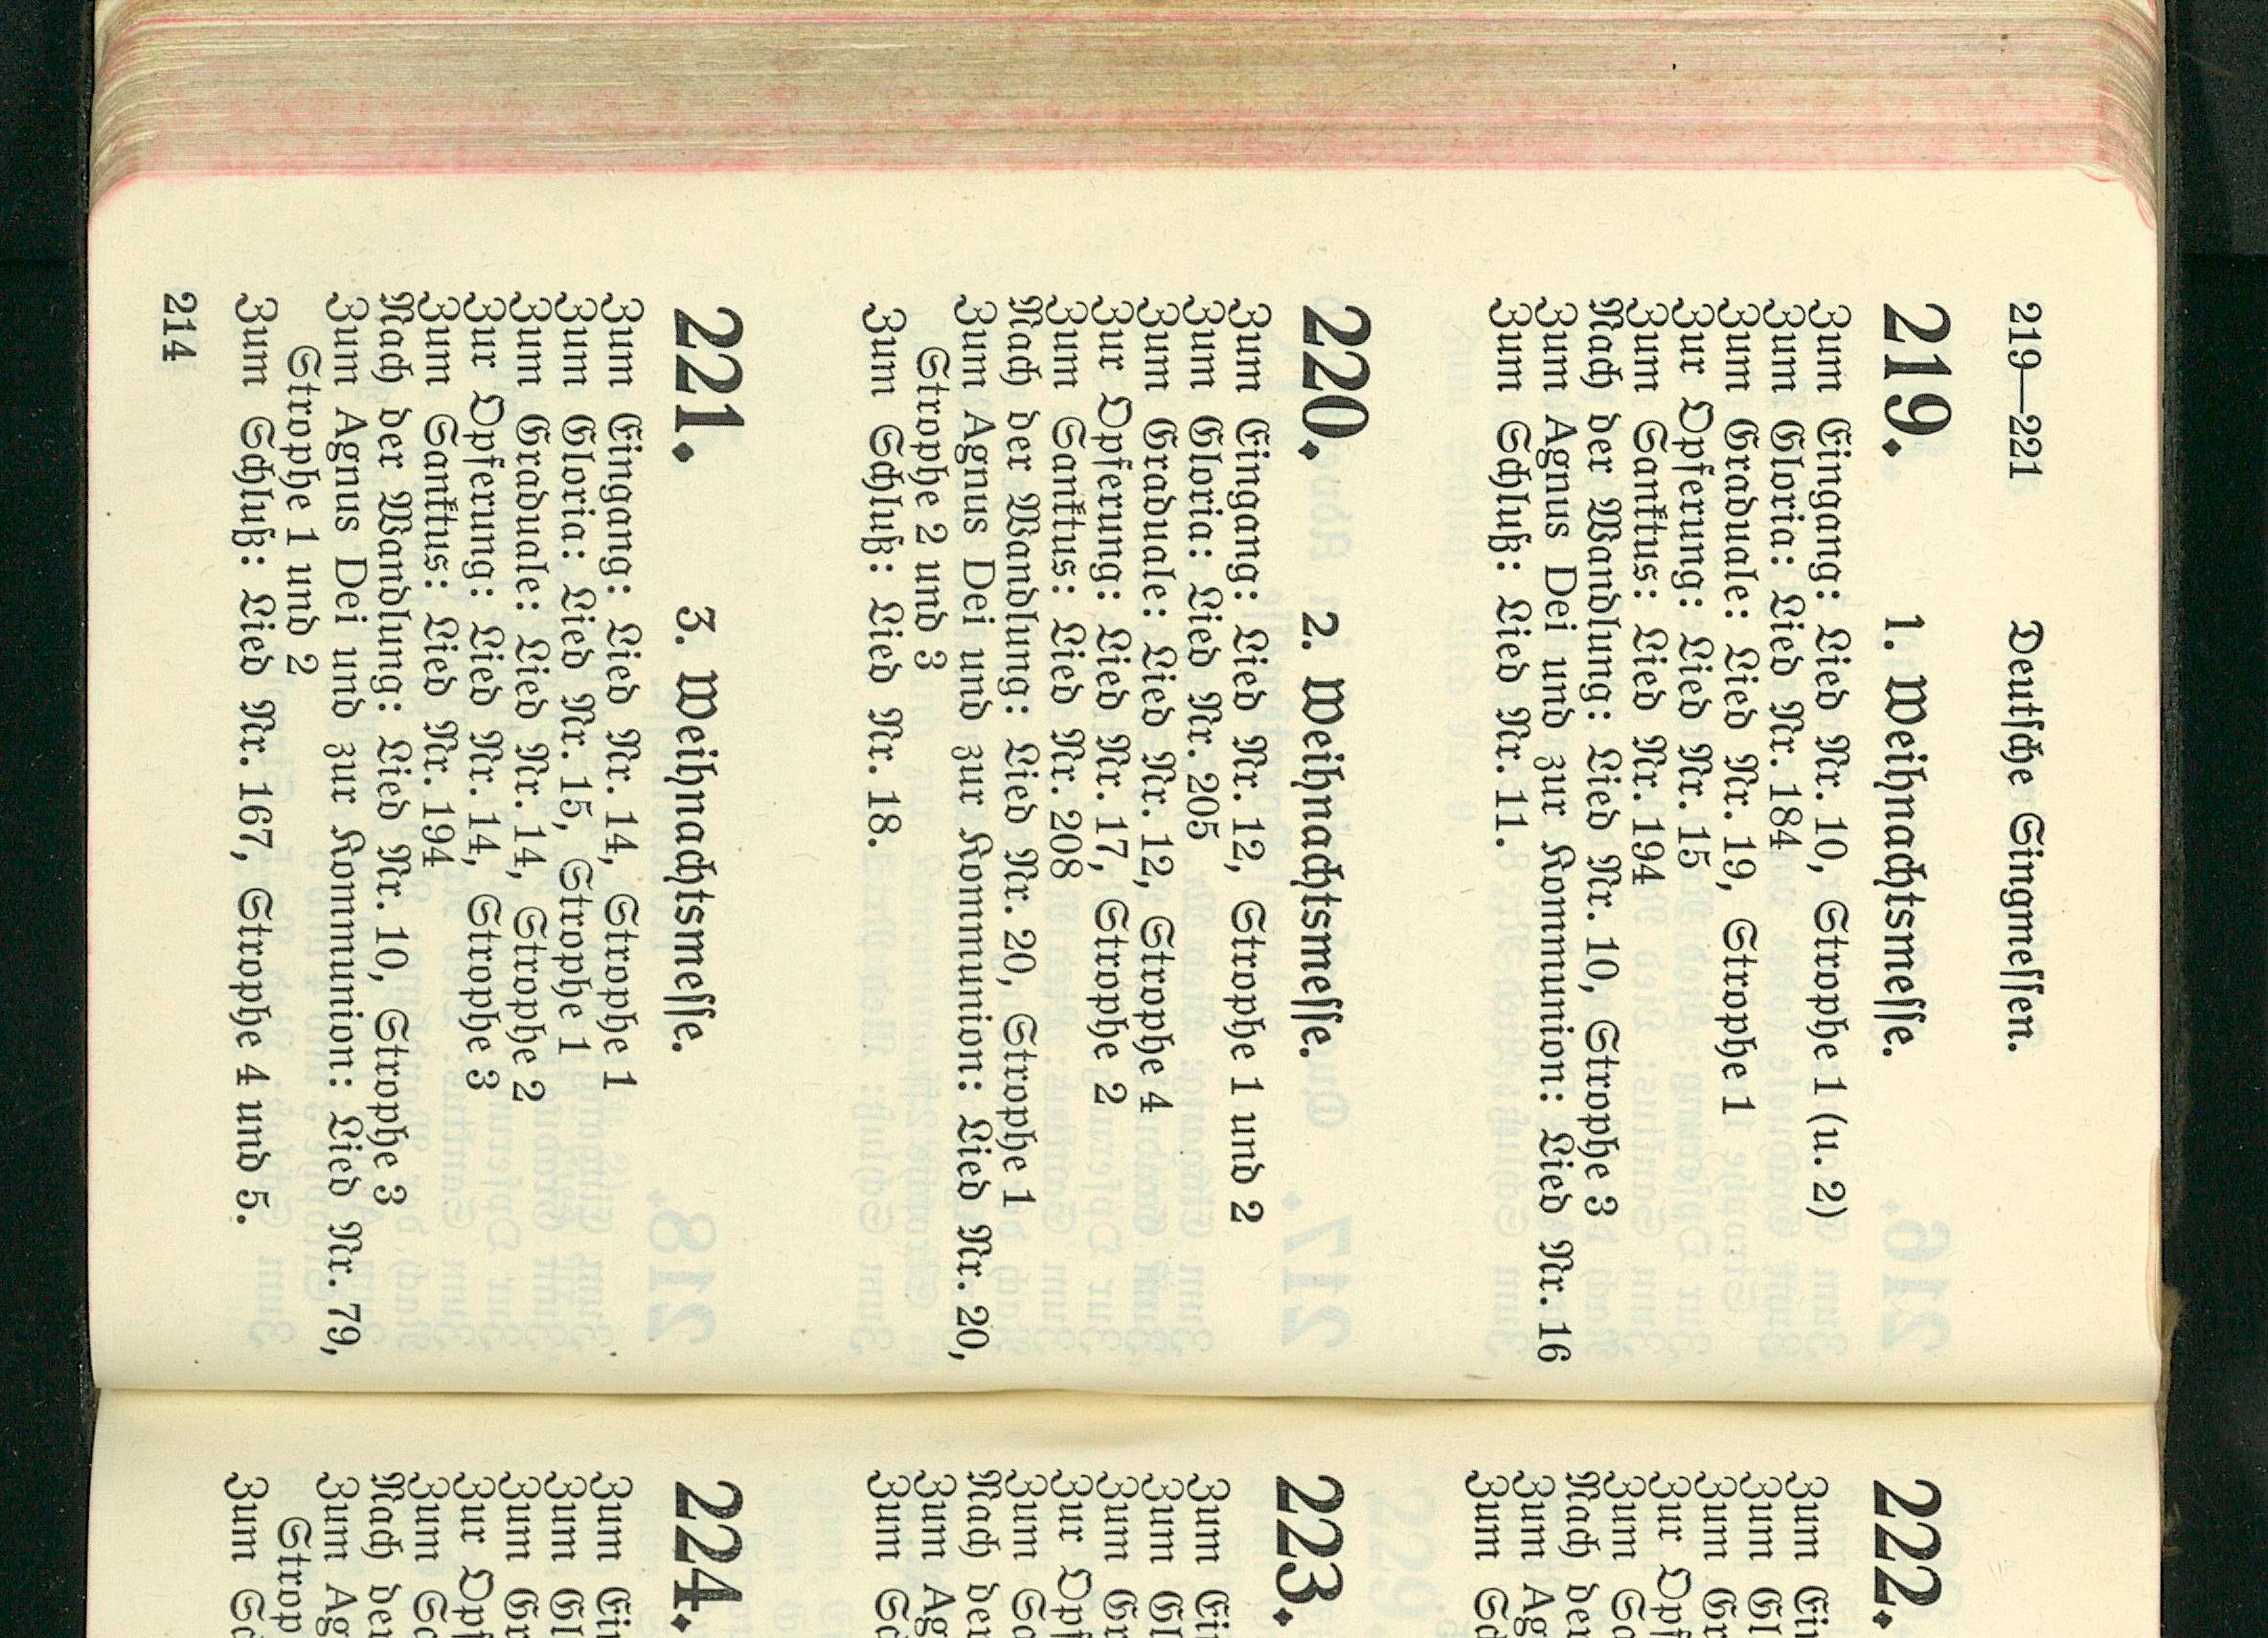 219—221 Deutsche Singmessen.
219. 1. Weihnachtsmesse.
Zum Eingang: Lied Nr. 10, Strophe 1 (u. 2)
Zum Gloria: Lied Nr. 184
Zum Graduale: Lied Nr. 19, Strophe 1
Zur Opferung: Lied Nr. 15
Zum Sanktus: Lied Nr. 194
Nach der Wandlung: Lied Nr. 10, Strophe 3
Zum Agnus Dei und zur Kommunion: Lied Nr. 16
Zum Schluß: Lied Nr. 11.
220. 2. Weihnachtsmesse.
Zum Eingang: Lied Nr. 12, Strophe 1 und 2
Zum Gloria: Lied Nr. 205
Zum Graduale: Lied Nr. 12, Strophe 4
Zur Opferung: Lied Nr. 17, Strophe 2
Zum Sanktus: Lied Nr. 208
Nach der Wandlung: Lied Nr. 20, Strophe 1
Zum Agnus Dei und zur Kommunion: Lied Nr. 20,
Strophe 2 und 3
Zum Schluß: Lied Nr. 18.
221. 3. Weihnachtsmesse.
Zum Eingang: Lied Nr. 14, Strophe 1
Zum Gloria: Lied Nr. 15, Strophe 1
Zum Graduale: Lied Nr. 14, Strophe 2
Zur Opferung: Lied Nr. 14, Strophe 3
Zum Sanktus: Lied Nr. 194
Nach der Wandlung: Lied Nr. 10, Strophe 3
Zum Agnus Dei und zur Kommunion: Lied Nr. 79,
Strophe 1 und 2
Zum Schluß: Lied Nr. 167, Strophe 4 und 5.
214
222.
Zum Ein
Zum Gl
Zum Gr
Zur Opf
Zum Sa
Nach der
Zum Ag
Zum Sc
223.
Zum Ein
Zum Gl
Zum Gr
Zur Opf
Zum Sa
Nach der
Zum Ag
Zum Sc
224.
Zum Ein
Zum Gl
Zum Gr
Zur Opf
Zum Sa
Nach der
Zum Ag
Strop
Zum Sc